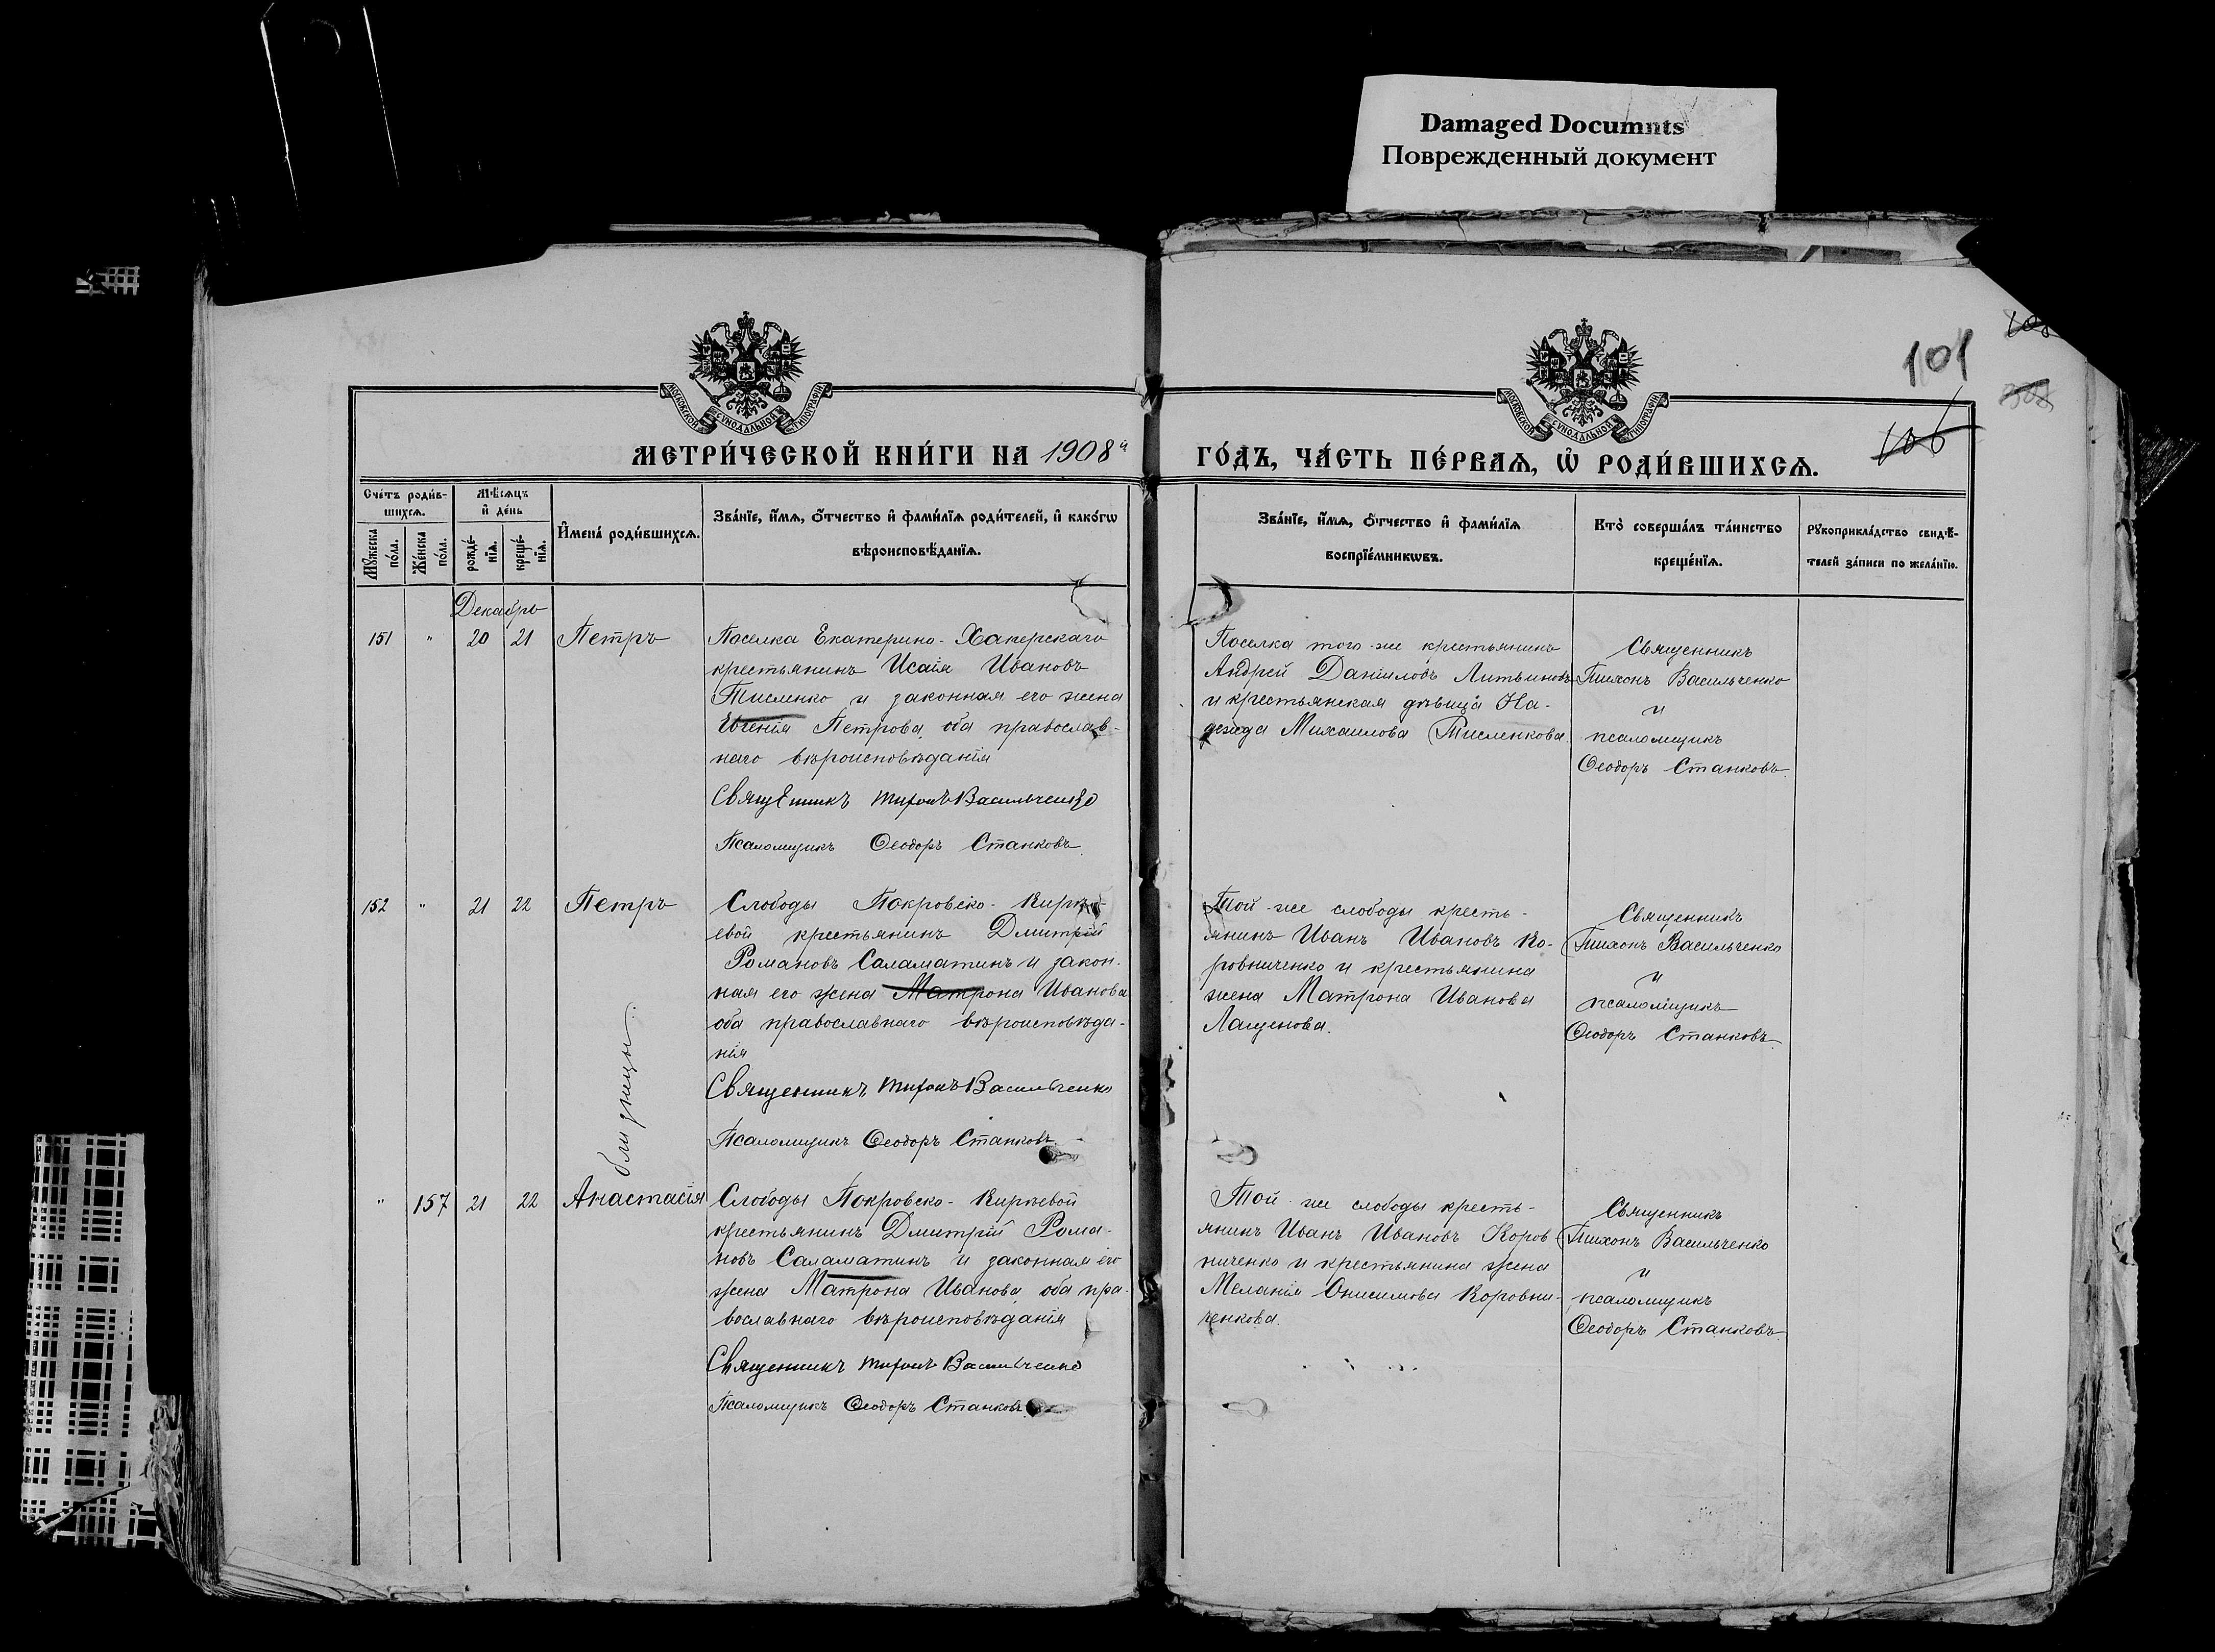 Damaged Documnts
Поврежденный документ
101
106
МОСКОВСКОЙ СѴНОДАЛЬНОЙ ТИПОГРАФІИ
МОСКОВСКОЙ СѴНОДАЛЬНОЙ ТИПОГРАФІИ
МЕТРИ́ЧЕСКОЙ КНИ́ГИ НА 1908й
ГО́ДЪ, ЧА́СТЬ ПЕ́РВАѦ, Ѡ РОДИ́ВШИХСѦ.
Сче́тъ роди́в-
шихсѧ.
Мꙋ́жеска
по́ла.
Же́нска
по́ла.
Мѣ́сѧцъ
и҆ де́нь
рожде́-
нїѧ.
креще́-
нїѧ.
И҆мена̀ роди́вшихсѧ.
Зва́нїе, и҆́мѧ, ѻ҆́тчество и҆ фами́лїѧ роди́телей, и҆ како́гѡ
вѣроисповѣ́данїѧ.
Зва́нїе, и҆́мѧ, ѻ҆́тчество и҆ фами́лїѧ
воспрїе́мникѡвъ.
Кто̀ соверша́лъ та́инство
креще́нїѧ.
Рꙋкоприкла́дство свидѣ́-
телей за́писи по жела́нїю.
Декабрь
151 " 20 21 Петръ
Поселка Екатерино-Хаперскаго
крестьянинъ Исаія Ивановъ
Тисленко и законная его жена
Евгенія Петрова, оба православ-
наго вѣроисповѣданія
Священникъ Тихонъ Васильченко
Псаломщикъ Ѳеодоръ Станковъ
Поселка того-же крестьянинъ
Андрей Даніиловъ Литвиновъ
и крестьянская дѣвица На-
дежда Михаилова Тисленкова.
Священникъ
Тихонъ Васильченко
и
псаломщикъ
Ѳеодоръ Станковъ.
152 " 21 22 Петръ
Слободы Покровско-Кирѣ-
евой крестьянинъ Дмитрій
Романовъ Саламатинъ и закон-
ная его жена Матрона Иванова
оба православнаго вѣроисповѣда-
нія
Священникъ Тихонъ Васильченко
Псаломщикъ Ѳеодоръ Станковъ
Той-же слободы кресть-
янинъ Иванъ Ивановъ Ко-
ровниченко и крестьянина
жена Матрона Иванова
Лащенова.
Священникъ
Тихонъ Васильченко
и
псаломщикъ
Ѳеодоръ Станковъ.
близнецы
" 157 21 22 Анастасія
Слободы Покровско-Кирѣевой
крестьянинъ Дмитрій Рома-
новъ Саламатинъ и законная его
жена Матрона Иванова, оба пра-
вославнаго вѣроисповѣданія
Священникъ Тихонъ Васильченко
Псаломщикъ Ѳеодоръ Станковъ
Той-же слободы кресть-
янинъ Иванъ Ивановъ Коров-
ниченко и крестьянина жена
Меланія Онисимова Коровни-
ченкова.
Священникъ
Тихонъ Васильченко
и
псаломщикъ
Ѳеодоръ Станковъ.